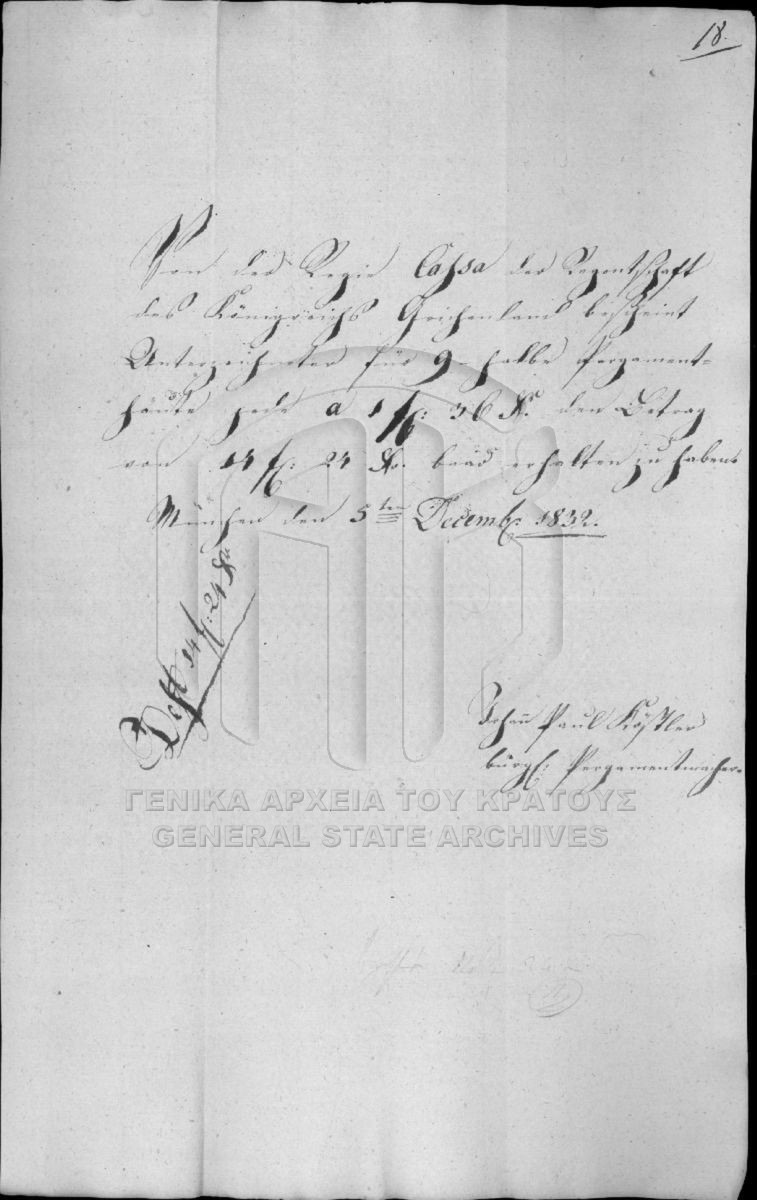 18.
Von der Regie Cassa der Regentschaft
des Königreichs Grichenland bescheint
Unterzeichneter für 9 halbe Pergament-
häute jede a 1 f: 36 Kr. den Betrag
von 14 f: 24 Kr. baar erhalten zu haben.
München den 5ten Decemb: 1832.
14 f: 24 Kr
Johann Paul Köstler
bürgl: Pergamentmacher.
ΓΕΝΙΚΑ ΑΡΧΕΙΑ ΤΟΥ ΚΡΑΤΟΥΣ
GENERAL STATE ARCHIVES